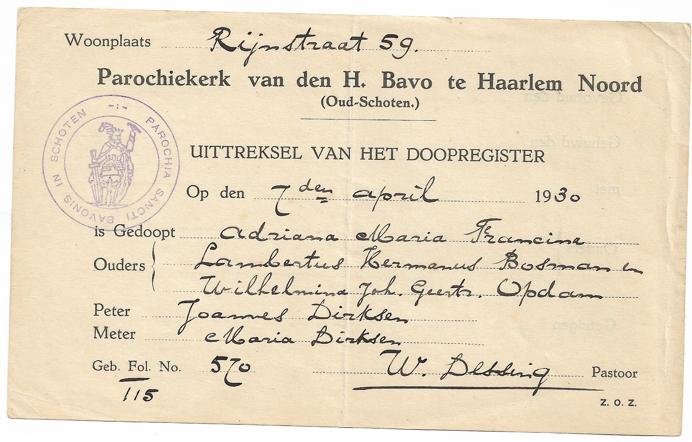 Woonplaats Rijnstraat 59.
Parochiekerk van den H. Bavo te Haarlem Noord
(Oud-Schoten.)
PAROCHIA SANCTI BAVONIS IN SCHOTEN -:-
UITTREKSEL VAN HET DOOPREGISTER
Op den 7den april 1930
is Gedoopt Adriana Maria Francine
Ouders { Lambertus Hermanus Bosman en
Wilhelmina Joh. Geertr. Opdam
Peter Joannes Dirksen
Meter Maria Dirksen
Geb. Fol. No. 570 W. Dessing Pastoor
115
z. o. z.